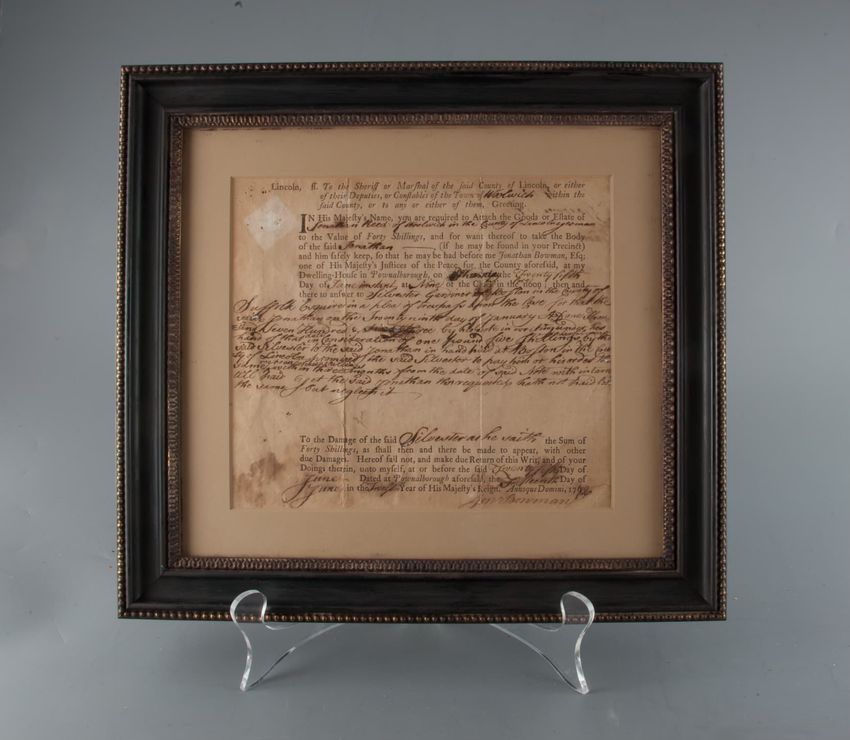 Lincoln, ſſ. To the Sheriff or Marſhal of the ſaid County of Lincoln, or either
of their Deputies, or Conſtables of the Town of Woolwich within the
ſaid County, or to any or either of them, Greeting.
IN His Majeſty's Name, you are required to Attach the Goods or Eſtate of
Jonathan Reed of Woolwich in the County of Lincoln yeoman
to the Value of Forty Shillings, and for want thereof to take the Body
of the ſaid Jonathan (if he may be found in your Precinct)
and him ſafely keep, ſo that he may be had before me Jonathan Bowman, Eſq;
one of His Majeſty's Juſtices of the Peace, for the County aforeſaid, at my
Dwelling-Houſe in Pownalborough, on Thursday the Twenty fifth
Day of June instant, at Nine of the Clock in the noon; then and
there to anſwer to Silvester Gardiner of Boston in the County of
Suffolk Esquire in a plea of trespass upon the Case for that the
said Jonathan on the Twenty ninth day of January one thou
sand Seven Hundred & three by a Note in writing under his
hand of that in Consideration of one pound five shillings by the
said Silvester to the said Jonathan in hand at Boston in the
ty of Lincoln promised the said Silvester to pay him or his order the
same within three months from the date of said Note with interest
till paid yet the said Jonathan tho requested hath not paid
the same but neglects it
To the Damage of the ſaid Silvester as he saith the Sum of
Forty Shillings, as ſhall then and there be made to appear, with other
due Damages. Hereof fail not, and make due Return of this Writ, and of your
Doings therein, unto myſelf, at or before the ſaid Twenty fifth Day of
June Dated at Pownalborough aforeſaid, the Day of
June in the Year of His Majeſty's Reign. Annoque Domini, 17
Jon Bowman